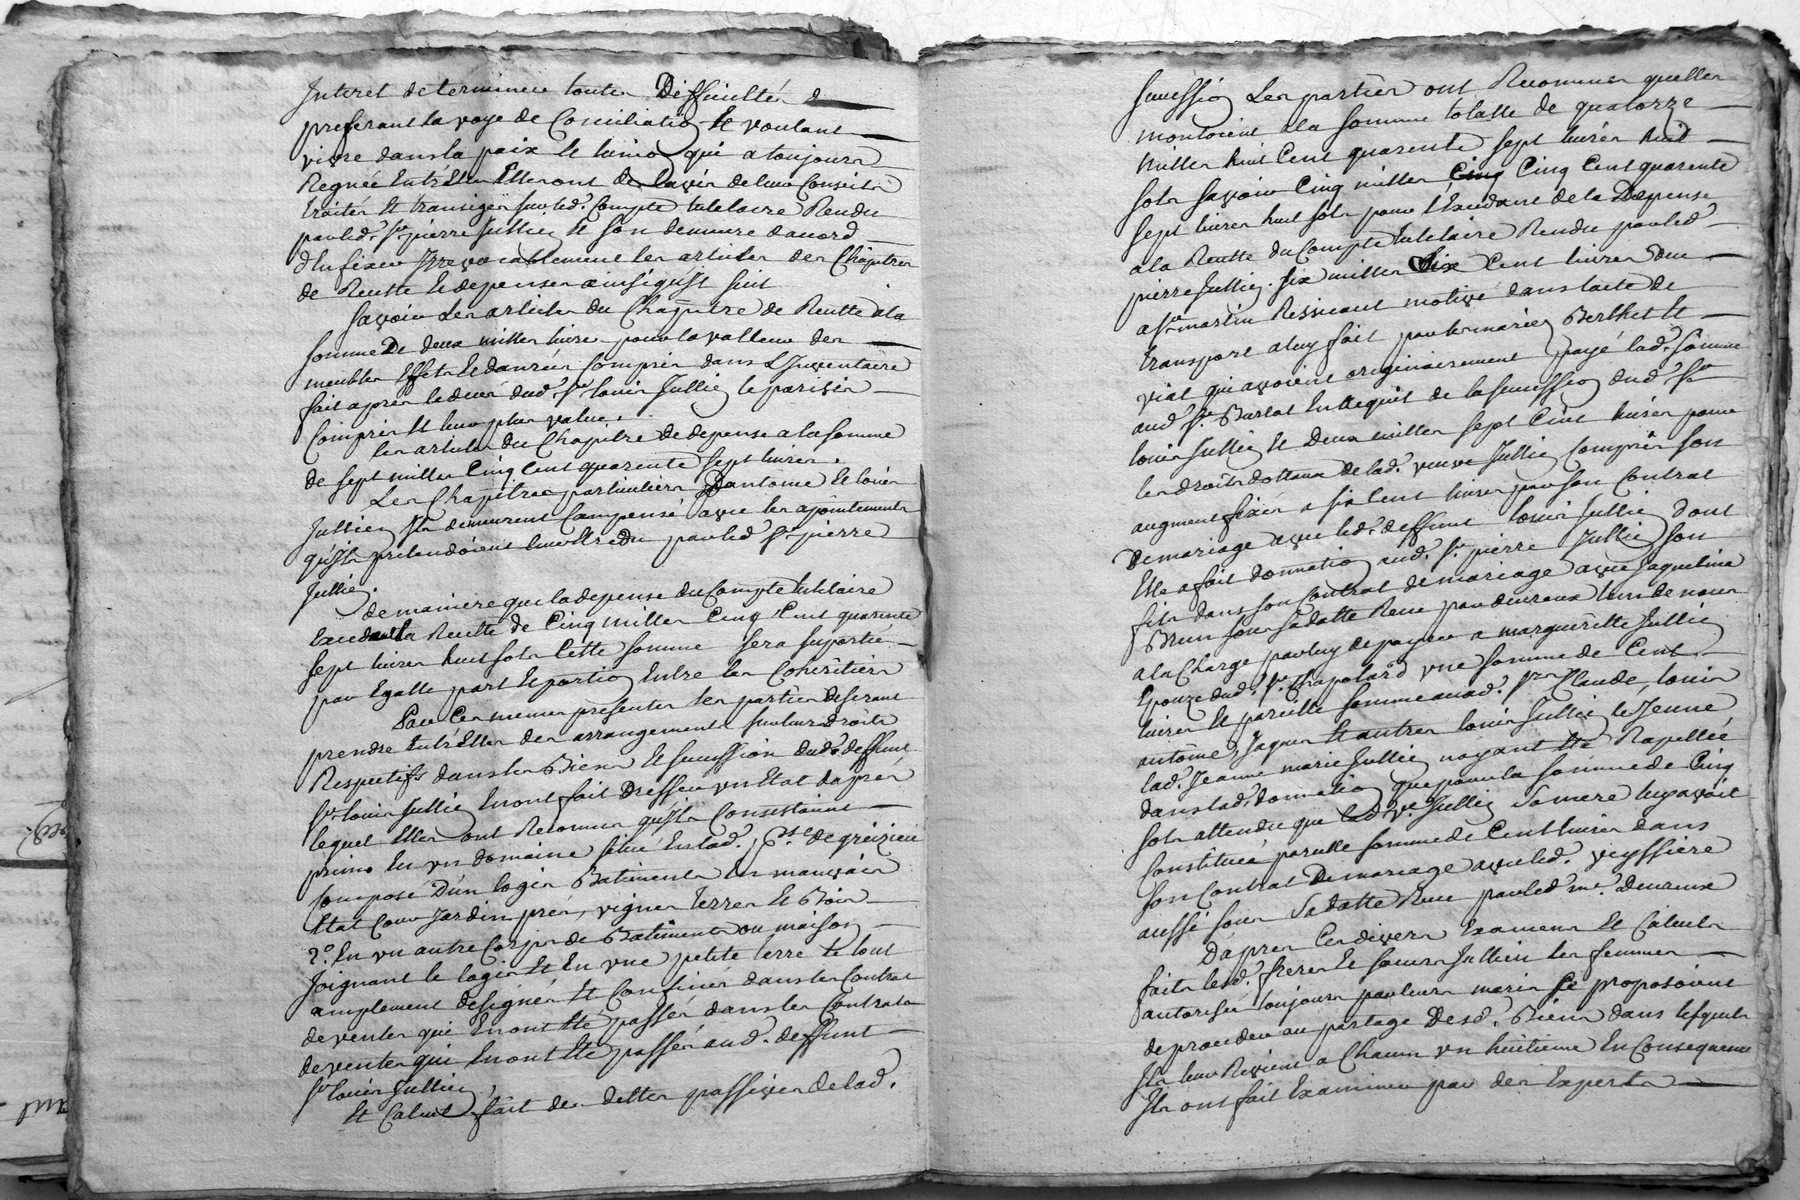 Interet determiner toutes Difficultés &
preferant la voye de Conciliation Et voulant
vivre dans la paix Et lunion qui a toujours
Regnée Entr'Elles Elles ont de lavis de leur Conseils
traités Et transiger sur led.t Compte tutelaire Rendu
par led.t Sr. pierre Jullien Et son demeuré dacord
d'En fixer Irrevocablement les articles des Chapitres
de Recette Et depenses ainsi qu'il suit
Savoir Les articles du Chapitre de Recette a la
somme De deux milles livres pour la valleur des
meubles Effets Et danrées Compris dans L'Inventaire
fait apres le decés dud.t Sr. louis Jullien le parisien
Compris Et leur plus value.
les articles du Chapitre de depense a la somme
de sept milles Cinq Cent quarente sept livres.
Les Chapitres particuliers Dantoine Et louis
Jullien Ils demeurent Compensé avec les ajointements
qu'ils pretendoient leur Etre Du par led.t Sr. pierre
Jullien.
de maniere que la depense du Compte tutelaire
Excedant la Recette de Cinq milles Cinq Cent quarente
sept livres huit sols Cette somme sera suportée
par Egalle part Et portion Entre les Cohéritiers
Par Ces memes presentes les parties desirant
prendre Entr'Elles des arrangements sur leurs Droits
Respectifs dans les Biens Et succession dud.t deffunt
Sr. louis Jullien En ont fait Dresser un Etat daprés
lequel Elles ont Reconnu qu'ils Consistoient
primo En un domaine situé En lad.te psse. de grézieu
composé D'un logis Batiments En mauvais
Etat Cour Jardin prés, vignes Terres Et Bois
2.° En un autre Corps de Batiments ou maison
Joignant le logis Et En une petite terre le tout
amplement designés Et Confinés dans les Contrat
de ventes qui En ont Eté passés dans les Contrats
de ventes qui En ont Eté passés aud.t deffunt
Sr. louis Jullien,
Et Calcul fait des dettes passives de lad.
succession Les parties ont Reconnus quelles
montoient a la somme totalle de quatorze
milles huit Cent quarente sept livres huit
sols Savoir Cinq milles Cinq Cinq Cent quarente
sept livres huit sols pour l'Excedant de la Depense
a la Recette du Compte tutelaire Rendu par led.
pierre Jullien. six milles six Cent livres due
a Sr. martin Ressicaut motivé dans lacte de
transport a luy fait par les mariés Berthet Et
viat qui avoient originairement payé lad.e somme
aud.t Sr. Barlat En lacquit de la succession dud.t Sr.
louis Jullien Et Deux milles sept Cent livres pour
les droits dottaux de lad.e veuve Jullien Compris son
augment fixés a six Cent livres par son Contrat
De mariage avec led.t deffunt louis Jullien dont
Elle a fait donnation aud.t Sr. pierre Jullien son
fils dans son Contrat de mariage avec Jaqueline
Brun sous sa datte Reçu par devreux lun de nous
a la Charge par luy de payer a marguerite Jullien
Epouze dud.t Sr. Chapolard une somme de Cent
livres Et pareille somme aud.t Srs. Claude, louis
antoine, Jaques Et autres louis Jullien le Jeune
lad.e Jeanne marie Jullien nayant Eté Rapellée
dans lad.e donnation que pour la somme de Cinq
sols attendu que lad.e ve. Jullien Sa mere luy avoit
Constitué pareille somme de Cent livres dans
son Contrat De mariage avec led.t veyssiere
aussi sous sa datte Reçu par led.t me. devreux
Dapres Ces divers Examens Et Calculs
faits lesd.t freres Et soeurs Jullien les femmes
autorisées toujours par leurs maris se proposoient
de proceder au partage Desd.t Biens dans lesquels
Ils leur Revient a Chacun un huitieme En Consequence
Ils ont fait Examiner par des Experts